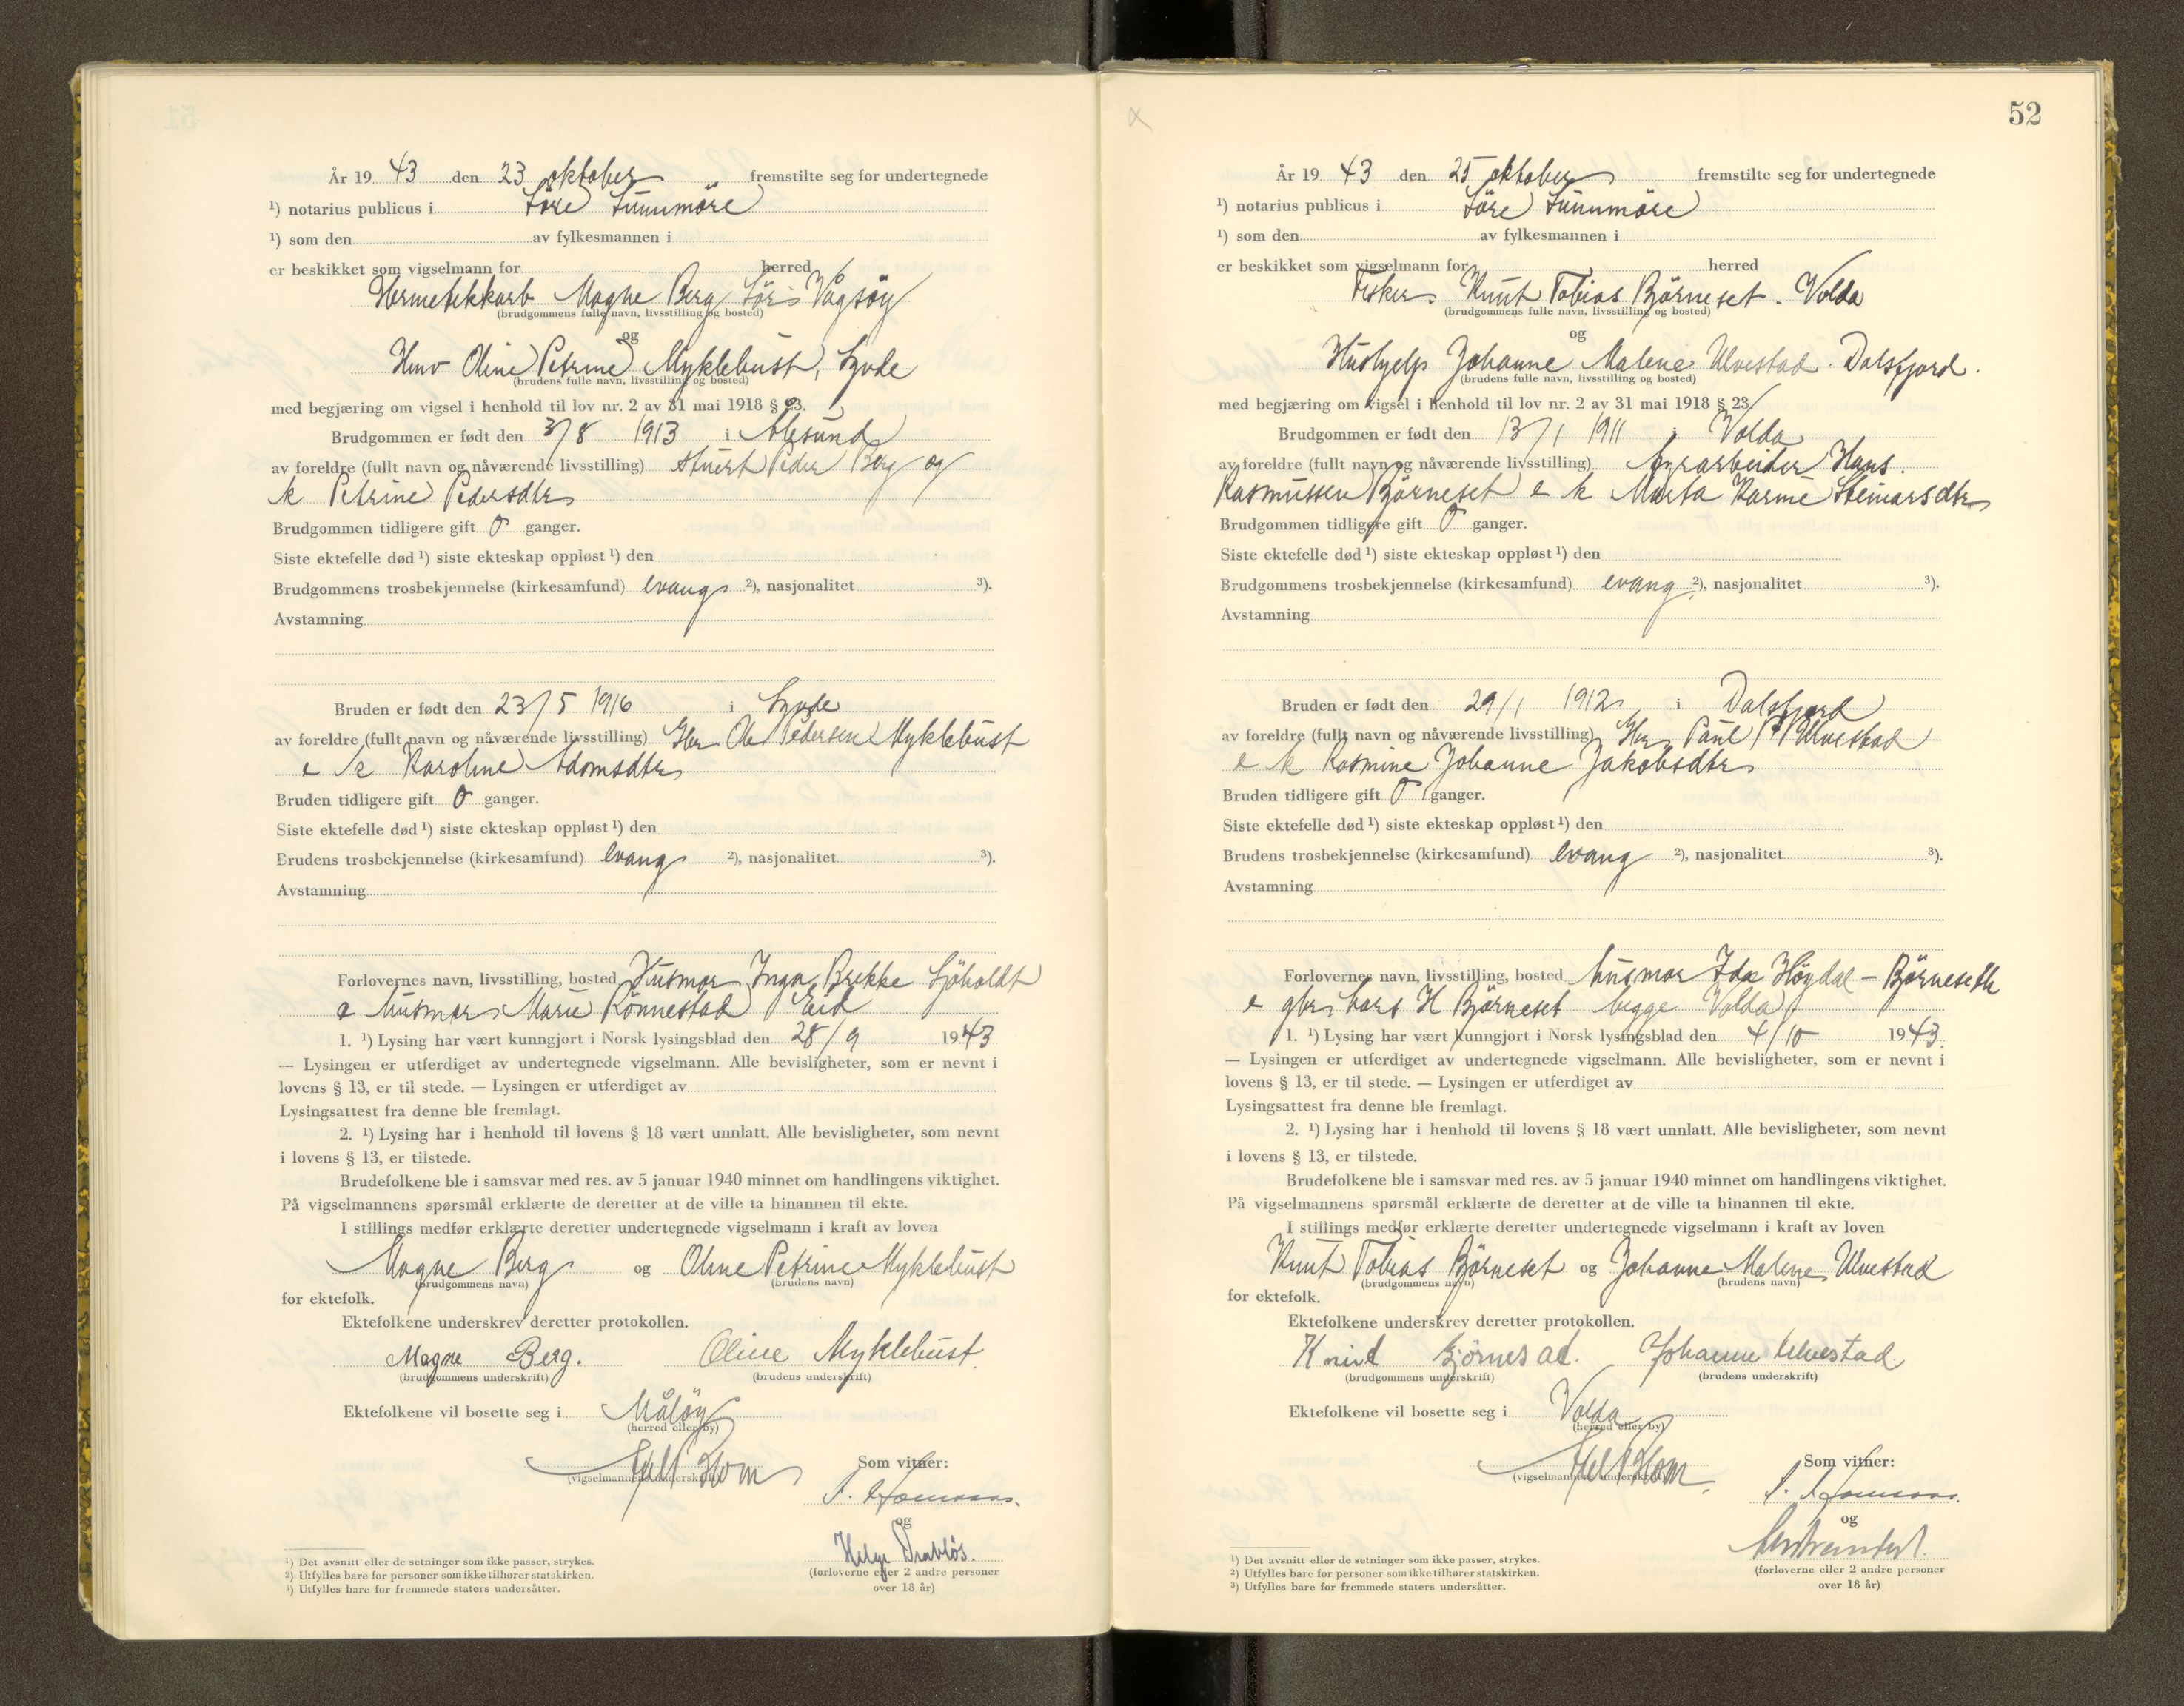 År 19 43 den 23 oktober fremstilte seg for undertegnede
¹) notarius publicus i Söre Sunnmöre
¹) som den av fylkesmannen i
er beskikket som vigselmann for herred
Hermetikkarb Magne Berg Sör-Vågsöy
(brudgommens fulle navn, livsstilling og bosted)
og
Oline Petrine Myklebust, Syvde
(brudens fulle navn, livsstilling og bosted)
med begjæring om vigsel i henhold til lov nr. 2 av 31 mai 1918 § 23.
Brudgommen er født den 3/8 1913 i Ålesund
av foreldre (fullt navn og nåværende livsstilling) Stuert Peder Berg og
k Petrine Pedersdtr
Brudgommen tidligere gift 0 ganger.
Siste ektefelle død ¹) siste ekteskap oppløst ¹) den
Brudgommens trosbekjennelse (kirkesamfund) evang ²), nasjonalitet ³).
Avstamning
Bruden er født den 23/5 1916 i Syvde
av foreldre (fullt navn og nåværende livsstilling) Gbr Ole Pedersen Myklebust
e k Karoline Adamsdtr
Bruden tidligere gift 0 ganger.
Siste ektefelle død ¹) siste ekteskap oppløst ¹) den
Brudens trosbekjennelse (kirkesamfund) evang ²), nasjonalitet ³).
Avstamning
Forlovernes navn, livsstilling, bosted Husmor Inga Brekke Sjöholdt
e husmor Marie Rönnestad Eid
1. ¹) Lysing har vært kunngjort i Norsk lysingsblad den 28/9 1943
— Lysingen er utferdiget av undertegnede vigselmann. Alle bevisligheter, som er nevnt i
lovens § 13, er til stede. — Lysingen er utferdiget av
Lysingsattest fra denne ble fremlagt.
2. ¹) Lysing har i henhold til lovens § 18 vært unnlatt. Alle bevisligheter, som nevnt
i lovens § 13, er tilstede.
Brudefolkene ble i samsvar med res. av 5 januar 1940 minnet om handlingens viktighet.
På vigselmannens spørsmål erklærte de deretter at de ville ta hinannen til ekte.
I stillings medfør erklærte deretter undertegnede vigselmann i kraft av loven
Magne Berg og Oline Petrine Myklebust
(brudgommens navn) (brudens navn)
for ektefolk.
Ektefolkene underskrev deretter protokollen.
Magne Berg. Oline Myklebust.
(brudgommens underskrift) (brudens underskrift)
Ektefolkene vil bosette seg i Målöy
(herred eller by)
Blom
(vigselmannens underskrift)
Som vitner:
og
Helge Drabløs.
(forloverne eller 2 andre personer
over 18 år)
¹) Det avsnitt eller de setninger som ikke passer, strykes.
²) Utfylles bare for personer som ikke tilhører statskirken.
³) Utfylles bare for fremmede staters undersåtter.
52
År 19 43 den 25 oktober fremstilte seg for undertegnede
¹) notarius publicus i Söre Sunnmöre
¹) som den av fylkesmannen i
er beskikket som vigselmann for herred
Fisker Knut Tobias Björneset. Volda
(brudgommens fulle navn, livsstilling og bosted)
og
Hushjelp Johanne Malene Ulvestad. Dalsfjord.
(brudens fulle navn, livsstilling og bosted)
med begjæring om vigsel i henhold til lov nr. 2 av 31 mai 1918 § 23.
Brudgommen er født den 13/1 1911 i Volda
av foreldre (fullt navn og nåværende livsstilling) fyrarbeider Hans
Rasmussen Björneset e k Marta Karine Steinarsdtr
Brudgommen tidligere gift 0 ganger.
Siste ektefelle død ¹) siste ekteskap oppløst ¹) den
Brudgommens trosbekjennelse (kirkesamfund) evang ²), nasjonalitet ³).
Avstamning
Bruden er født den 29/1 1912 i Dalsfjord
av foreldre (fullt navn og nåværende livsstilling) Gbr Paul P Ulvestad
e k Rasmine Johanne Jakobsdtr
Bruden tidligere gift 0 ganger.
Siste ektefelle død ¹) siste ekteskap oppløst ¹) den
Brudens trosbekjennelse (kirkesamfund) evang ²), nasjonalitet ³).
Avstamning
Forlovernes navn, livsstilling, bosted husmor Ida Höydal — Björneseth
e gbr Lars H Björneset begge Volda
1. ¹) Lysing har vært kunngjort i Norsk lysingsblad den 4/10 1943.
— Lysingen er utferdiget av undertegnede vigselmann. Alle bevisligheter, som er nevnt i
lovens § 13, er til stede. — Lysingen er utferdiget av
Lysingsattest fra denne ble fremlagt.
2. ¹) Lysing har i henhold til lovens § 18 vært unnlatt. Alle bevisligheter, som nevnt
i lovens § 13, er tilstede.
Brudefolkene ble i samsvar med res. av 5 januar 1940 minnet om handlingens viktighet.
På vigselmannens spørsmål erklærte de deretter at de ville ta hinannen til ekte.
I stillings medfør erklærte deretter undertegnede vigselmann i kraft av loven
Knut Tobias Björneset og Johanne Malene Ulvestad
(brudgommens navn) (brudens navn)
for ektefolk.
Ektefolkene underskrev deretter protokollen.
Knut Bjørnesad. Johanne Ulvestad
(brudgommens underskrift) (brudens underskrift)
Ektefolkene vil bosette seg i Volda
(herred eller by)
Blom
(vigselmannens underskrift)
Som vitner:
og
(forloverne eller 2 andre personer
over 18 år)
¹) Det avsnitt eller de setninger som ikke passer, strykes.
²) Utfylles bare for personer som ikke tilhører statskirken.
³) Utfylles bare for fremmede staters undersåtter.